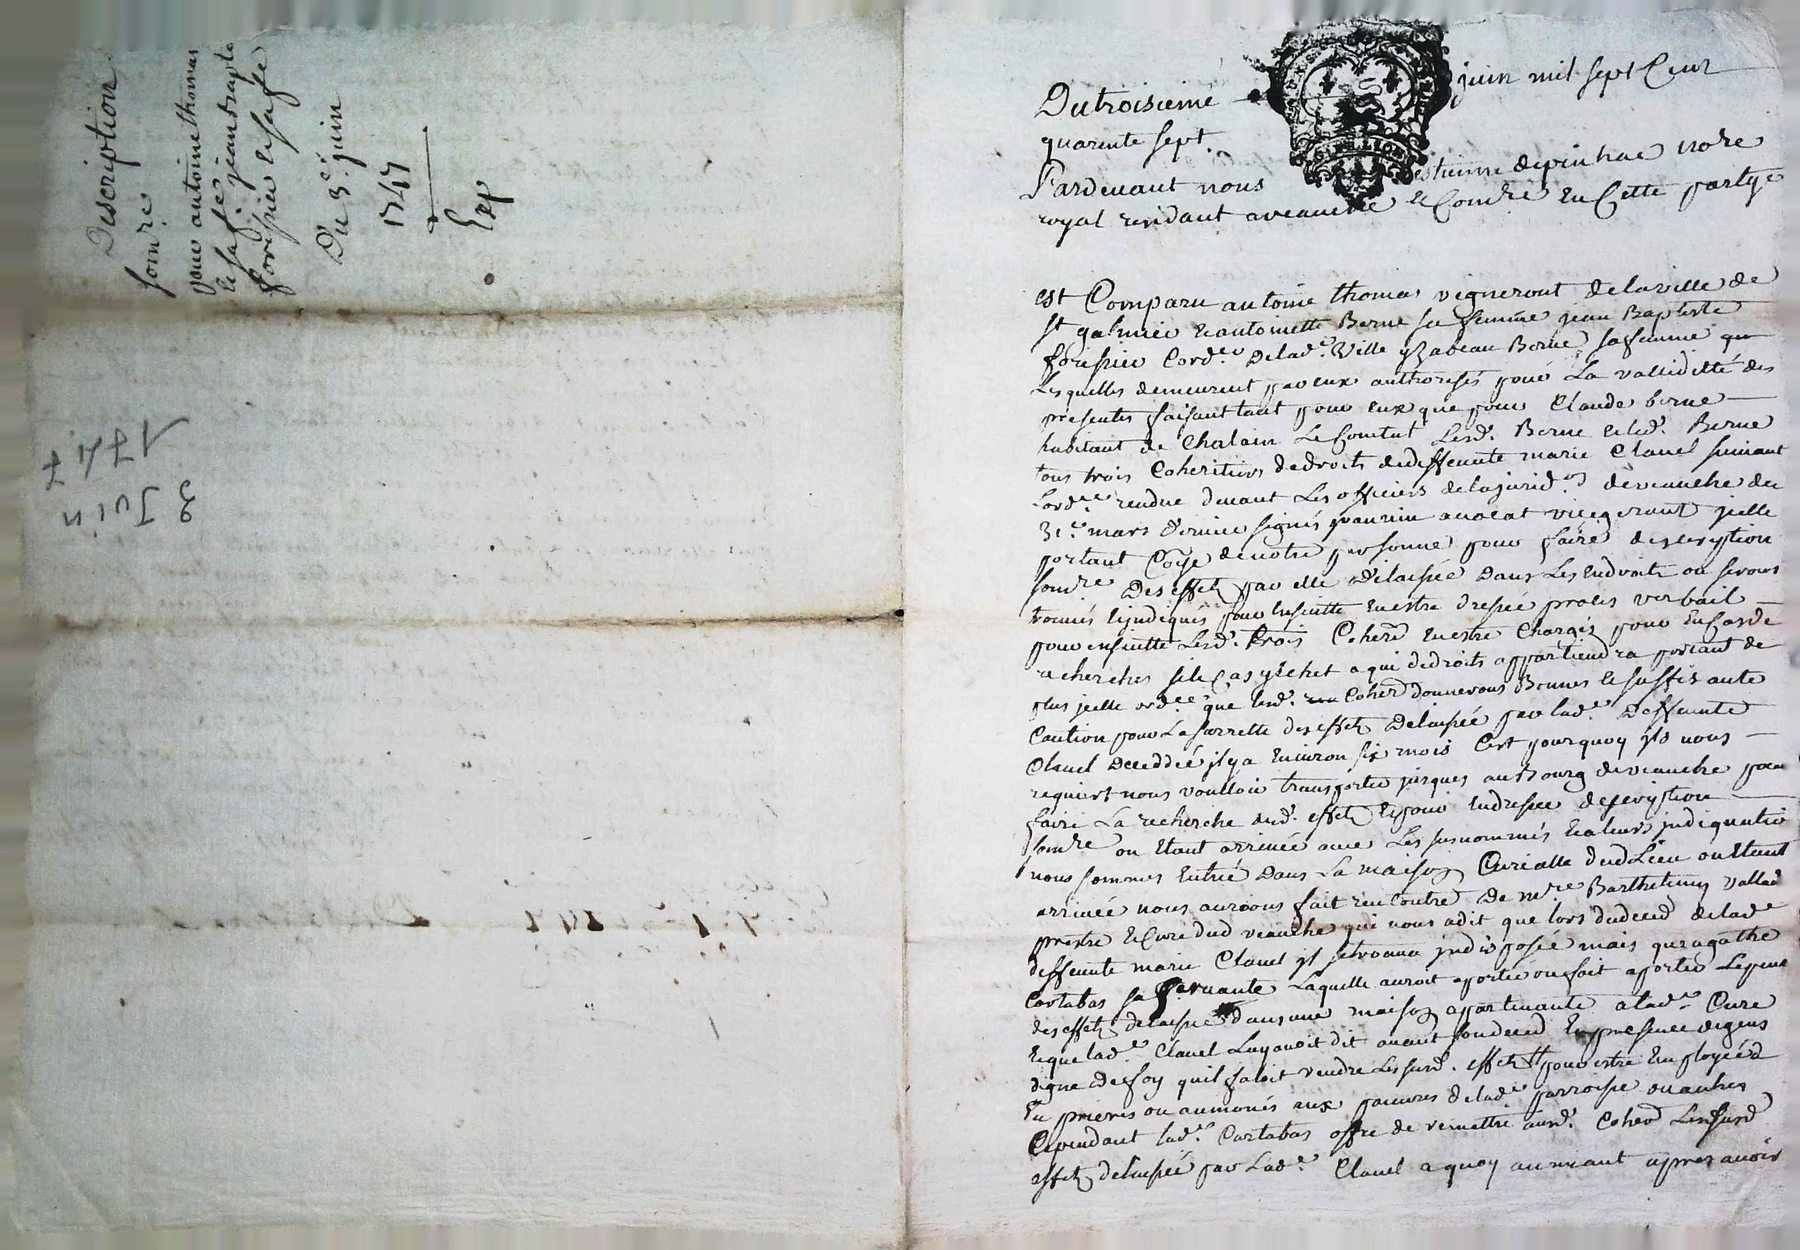 Description
som.re
pour antoine thomas
le sage jean bapte
forissier le sage
Du 3.e juin
1747
Exp
3 Juin
1747
Du troisieme juin mil sept Cent
quarente sept.
Pardevant nous estienne depinhac notre
royal residant a veauche Comre En Cette partye
est Comparu antoine thomas vigneront de la ville de
st galmier et antoinette Berne sa femme jean Baptiste
forissier Cord.er de lad.e Ville yzabeau Berne sa femme
Lesquelles demeurent par eux authorisés pour La validitté des
presentes faisant tant pour Eux que pour Claude berne
habitant de Chalain Le Comtat Lesd. Berne et led. Berne
tous trois Coheritiers de droits de deffeunte marie Clavel suivant
Lord.ce rendue devant Les officiers de la jurid.on de veauche du
31.e mars dernier signés avocat vicegerant jcelle
portant de notre personne pour faire description
som.re Des effets par elle Délaissée Dans Les Endroits ou seront
trouvés Ejndiqués pour Ensuitte En estre dressée proces verbail
pour ensuitte Lesd. trois Coherd En estre Chargés pour En faire
recherches sile Cas y échet a qui de droits appartiendra portant de
plus jcelle ord.ce que lesd. Coherd donnerons Bonnes et suffisante
Caution pour La des effets Delaissée par lad.e Deffeunte
Clavel Deceddée jl y a Environ six mois Cest pourquoy jls nous
requiert nous voulloir transporter jusques au Bourg de veauche pour
faire La recherche desd. effets Et pour En dressee description
somre ou Etant arrivée avec Les susnommés Ea leurs jndiquation
nous sommes Entrée Dans La maison Curialle dud Lieu ou Etant
arrivée nous aurions fait rencontre De mre Barthelemy vallad
prestre et Curé dud veauche qui nous a dit que lors du deced de lad.e
deffeunte marie Clavel jl se trouva jndisposée mais qu'agathe
Cartabas sa servante Laquelle auroit aportée ou fait aporter Le peu
des effets delaissée dans une maison appartenante a lad.e Cure
Eque lad.e Clavel Luy avoit dit avant son deced En presence de gens
digne De foy qu'il faloit vendre Les susd. effets pour estre Employééd
En prieres ou aumones aux pauvres de lad.e parroisse ou autres
Cependant lad.e Cartabas offre de remettre ausd. Coherd Lesd susd
effets delaissée par Lad.e Clavel a quoy aurivant apres avoir